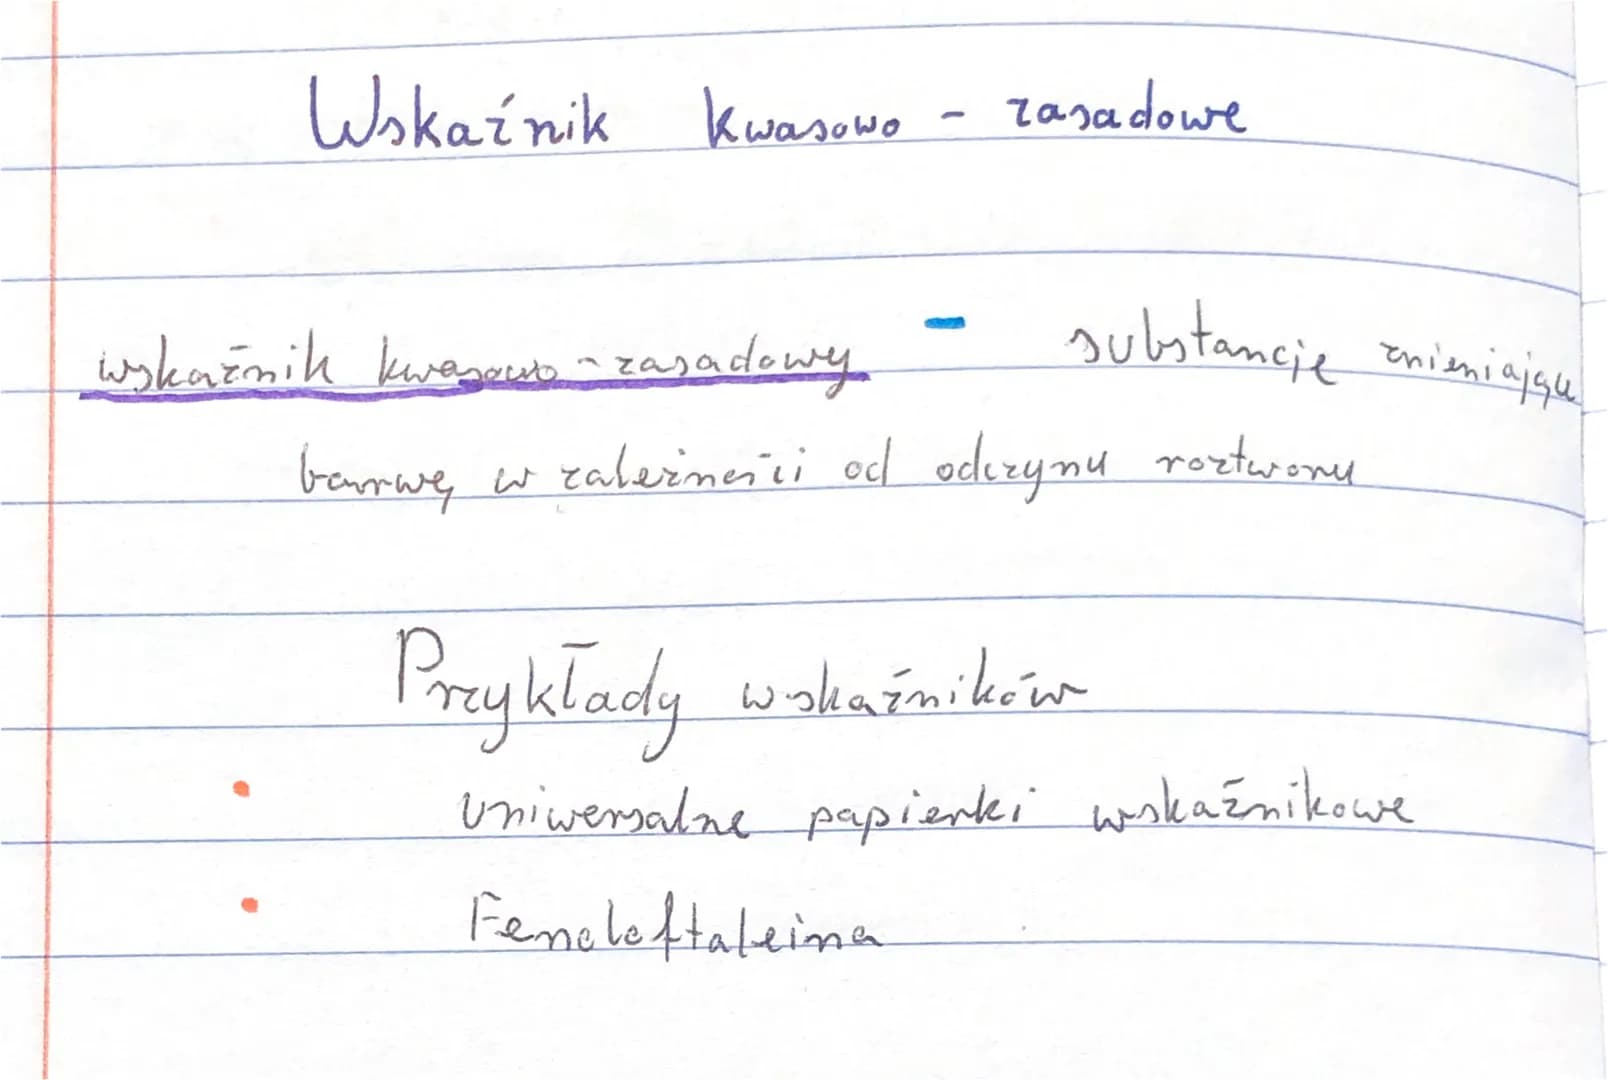 Wskaźnik kwasowo - zasadowe
wskaźnik kwasowo-zasadowy - substancje zmieniające
barwę w zależności od odczynu roztworu
Przykłady wskaźników
• uniwersalne papierki wskaźnikowe
• Fenoloftaleina